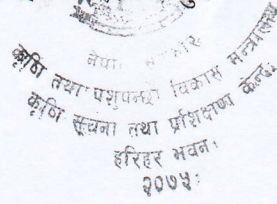 नेपाल
कृषि तथा पशुपन्छी विकास मन्त्रालय
कृषि सूचना तथा प्रशिक्षण केन्द्र
हरिहर भवन।
२०७५